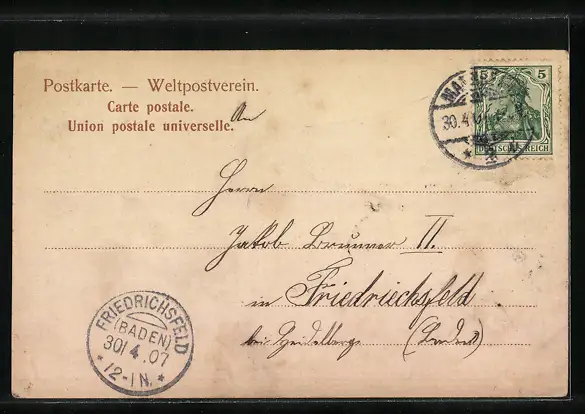 Postkarte. — Weltpostverein.
Carte postale.
Union postale universelle.
An
5 5
DEUTSCHES REICH
30.4.
Herrn
Jakob Brunner II.
in Friedriechsfeld
bei Heidelberg (Baden)
FRIEDRICHSFELD
(BADEN)
30/4.07
* 12-1N. *